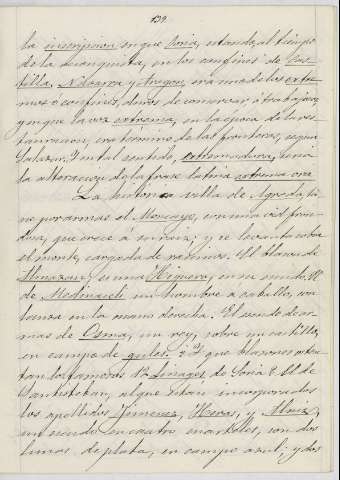 139.
la inscripcion, en que Soria, estando, al tiempo
de la reconquista, en los confines de Cas-
tilla, Navarra y Aragon, era una de los extre-
mos ó confines, dignos de conservar, ó trabajosos,
y en que la voz extrema, en la época de la res-
tauracion, era término de las fronteras, segun
Salazar. En tal sentido, extremadura, seria
la alteracion de la frase latina extrema ora
La histórica villa de Agreda, tie-
ne por armas el Moncayo, con una vid fron-
dosa, que crece á su raiz, y se levanta sobre
el monte, cargada de racimos. El blason de
Almazan, es una Higuera, en su escudo. El
de Medinaceli un hombre á caballo, con
lanza en la mano derecha. El escudo de ar-
mas de Osma, un rey, sobre un castillo,
en campo de gules. El que blasonan osten-
tan los famosos 12 linages, de Soria &. El de
Santisteban, al que estan incorporados
los apellidos Jimenez, Heras, y Muñiz,
un escudo en cuatro cuarteles, con dos
lunas, de plata, en campo azul; y dos